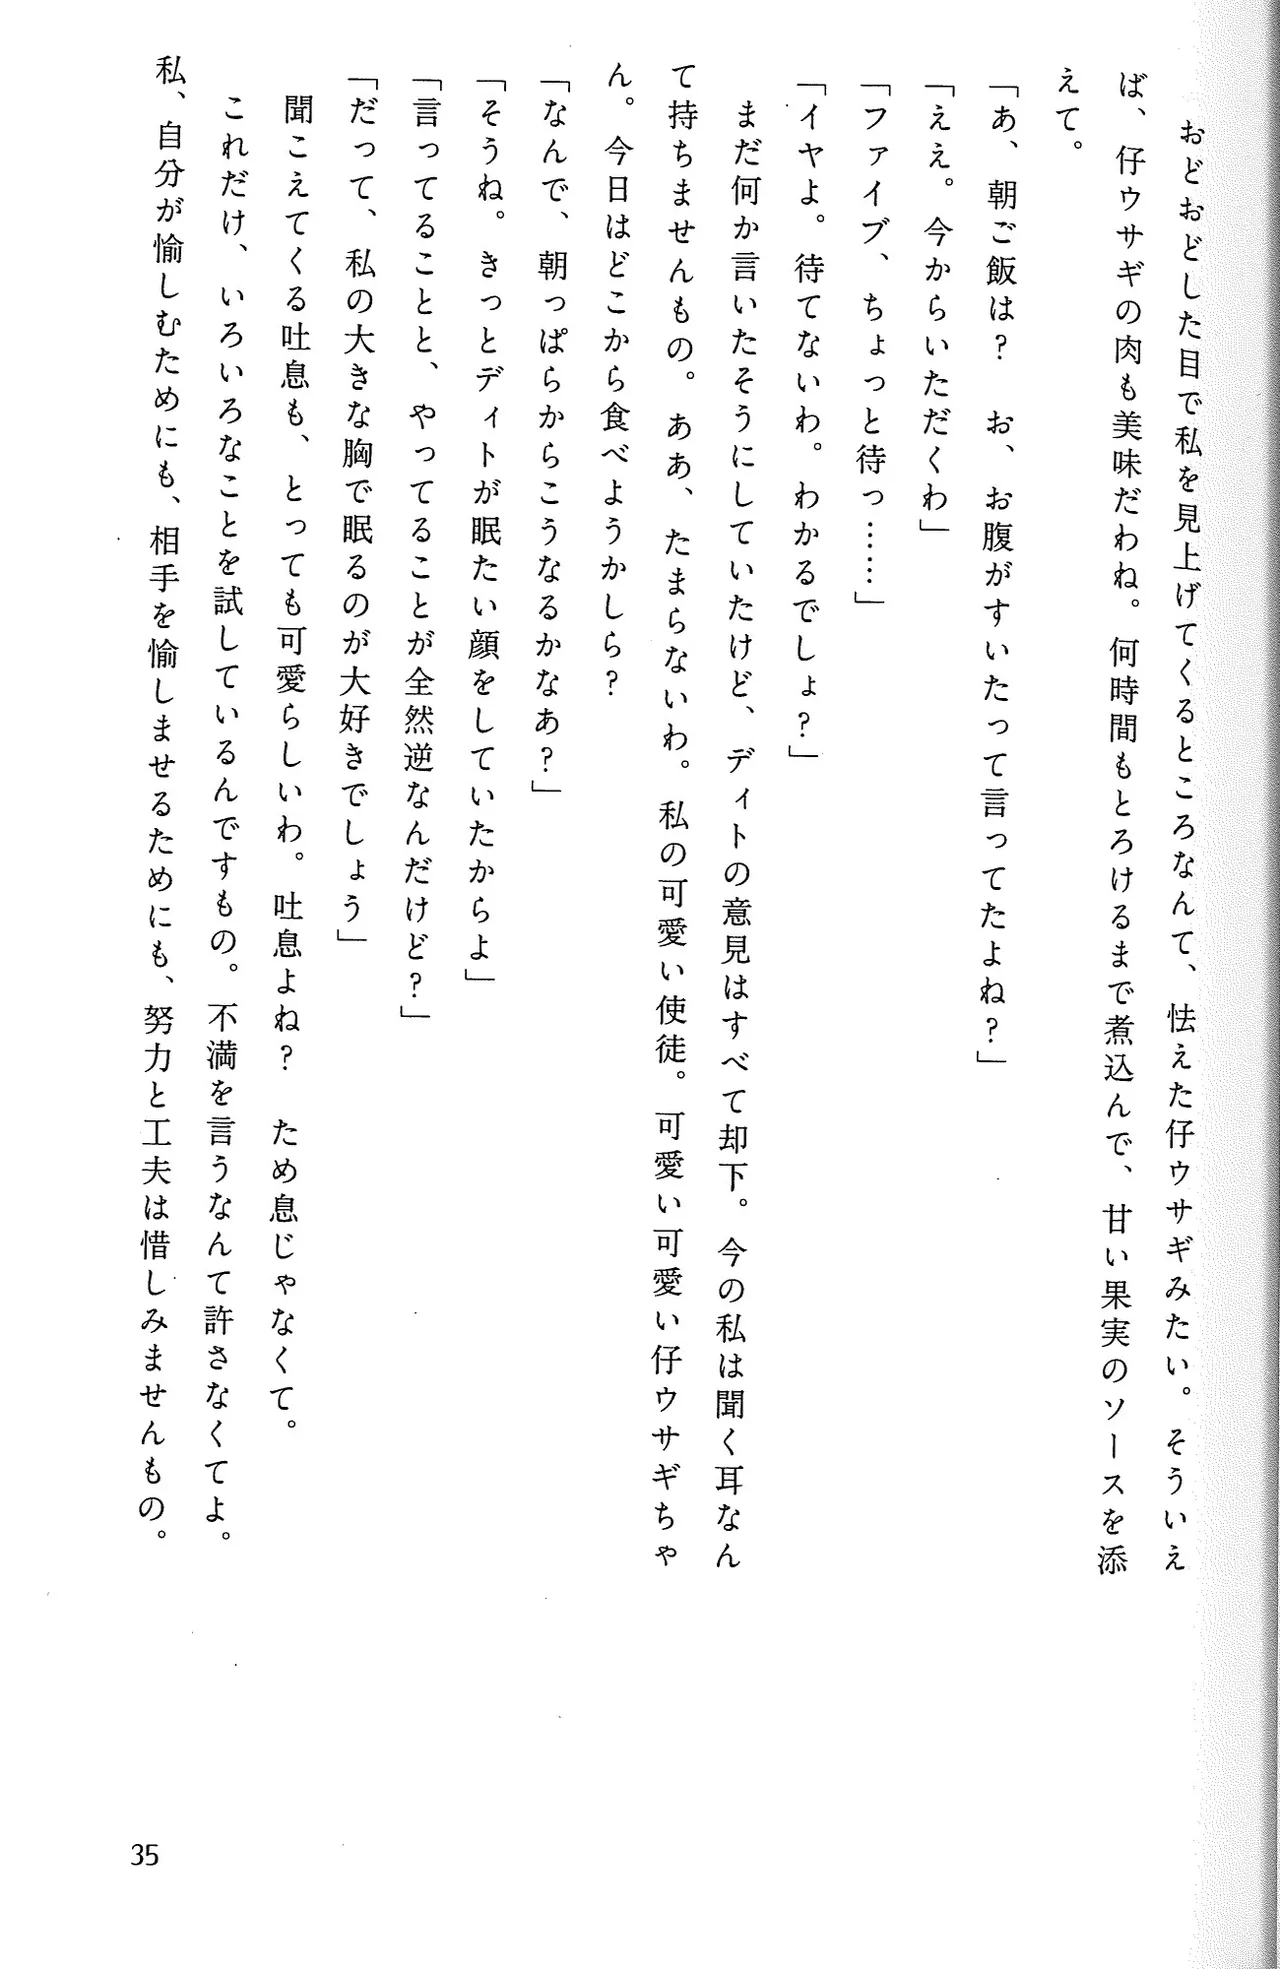 おどおどした目で私を見上げてくるところなんて、怯えた仔ウサギみたい。そういえ
ば、仔ウサギの肉も美味だわね。何時間もとろけるまで煮込んで、甘い果実のソースを添
えて。
「あ、朝ご飯は？　お、お腹がすいたって言ってたよね？」
「ええ。今からいただくわ」
「ファイブ、ちょっと待っ……」
「イヤよ。待てないわ。わかるでしょ？」
　まだ何か言いたそうにしていたけど、ディトの意見はすべて却下。今の私は聞く耳なん
て持ちませんもの。ああ、たまらないわ。私の可愛い使徒。可愛い可愛い仔ウサギちゃ
ん。今日はどこから食べようかしら？
「なんで、朝っぱらからこうなるかなあ？」
「そうね。きっとディトが眠たい顔をしていたからよ」
「言ってることと、やってることが全然逆なんだけど？」
「だって、私の大きな胸で眠るのが大好きでしょう」
　聞こえてくる吐息も、とっても可愛らしいわ。吐息よね？　ため息じゃなくて。
　これだけ、いろいろなことを試しているんですもの。不満を言うなんて許さなくてよ。
私、自分が愉しむためにも、相手を愉しませるためにも、努力と工夫は惜しみませんもの。
35